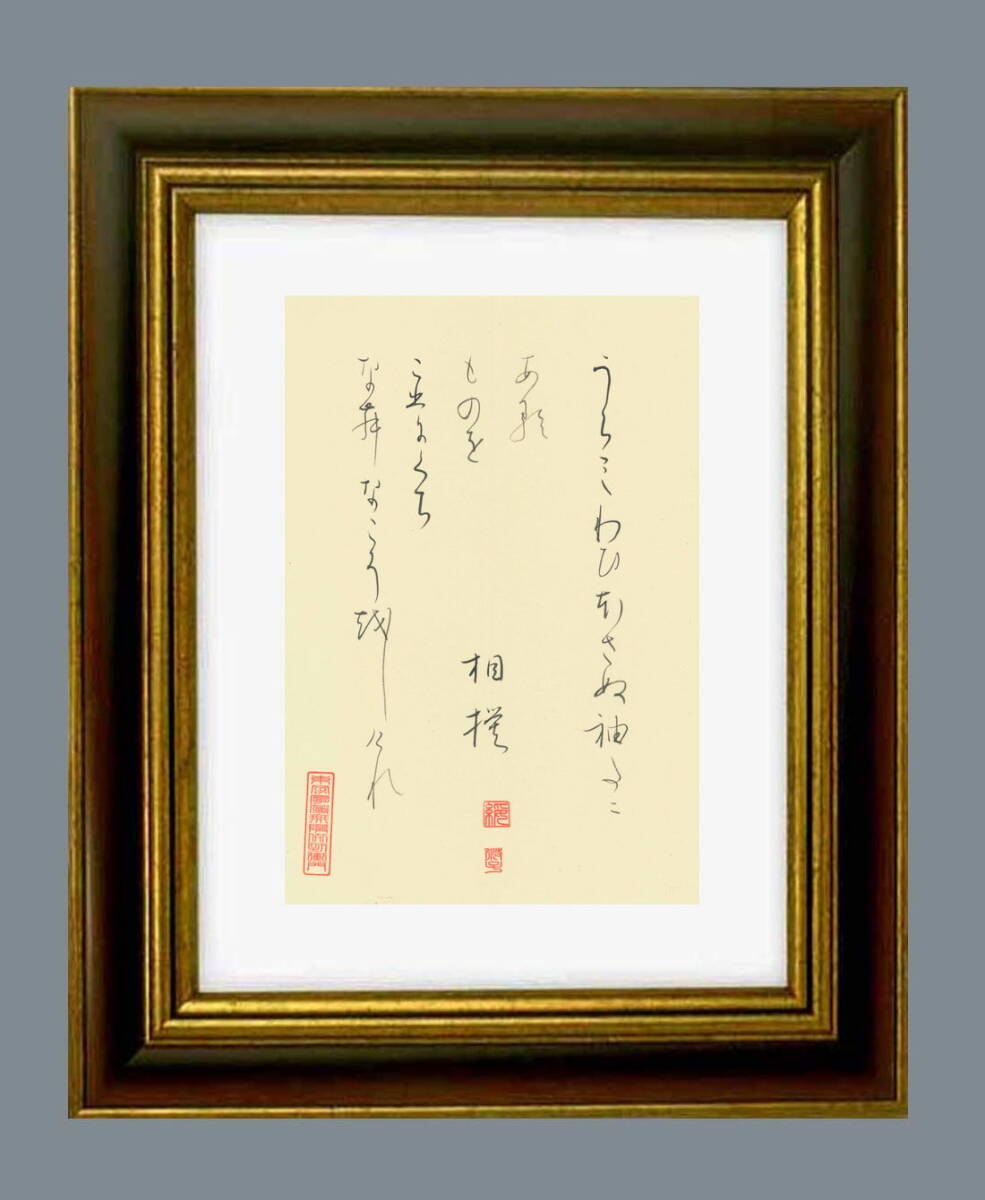 うらみわひほさぬ袖たに
ある
ものを
こひにくち
なむなこそをしけれ
相模